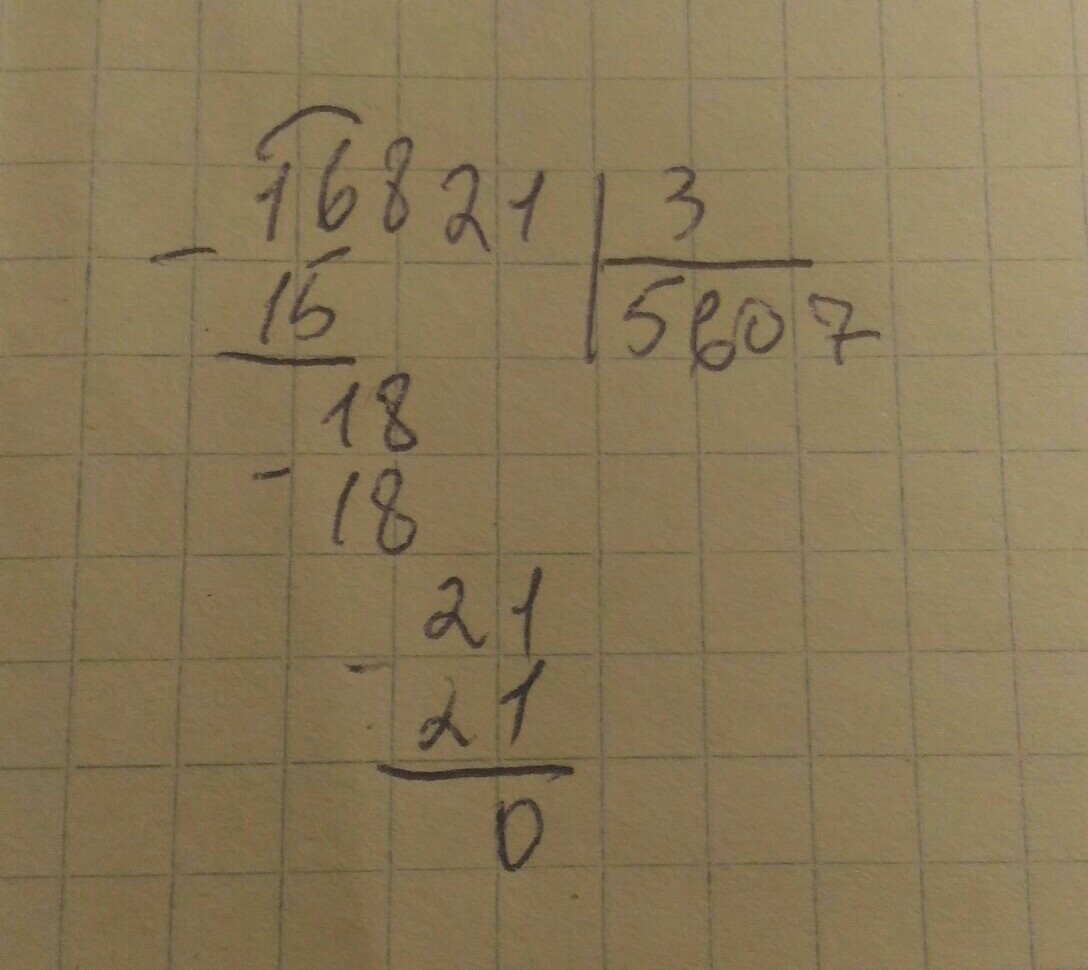 16821 3
- 15 5607
18
- 18
21
- 21
0